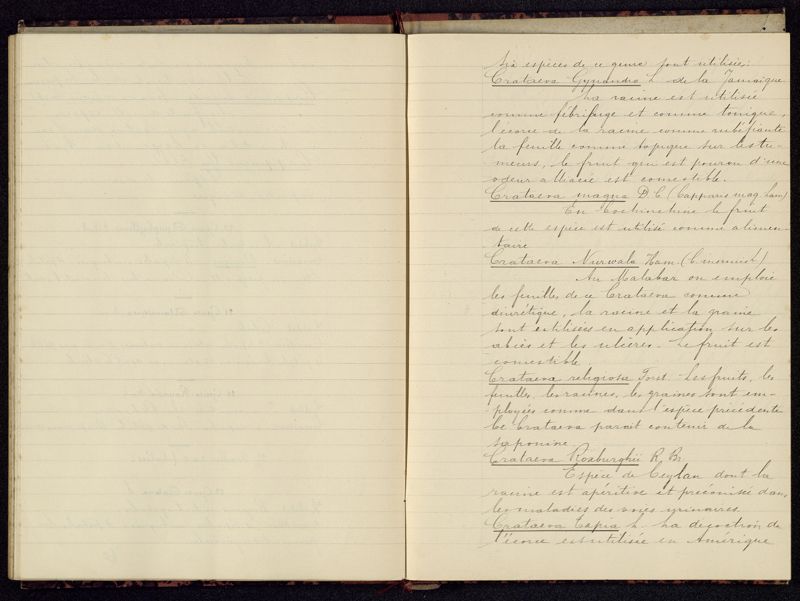 Six espèces de ce genre sont utilisées:
Crataeva Gynandra L. de la Jamaïque
La racine est utilisée
comme fébrifuge et comme tonique,
l'écorce de la racine comme rubéfiante
la feuille comme topique sur les tu-
meurs, le fruit qui est pourvu d'une
odeur alliacée est comestible.
Crataeva magna D.C. (Capparis mag. Lam)
En Cochinchine le fruit
de cette espèce est utilisé comme alimen-
taire
Crataeva Nurwala Ham. (C. inermis L.)
Au Malabar on emploie
les feuilles de ce Crataeva comme
diurétique, la racine et la graine
sont utilisées en application sur les
abcès et les ulcères. Le fruit est
comestible.
Crataeva religiosa Forst. Les fruits, les
feuilles, les racines, les graines sont em-
ployées comme dans l'espèce précédente
Ce Crataeva parait contenir de la
saponine
Crataeva Roxburghii R. Br.
Espèce de Ceylan dont la
racine est apéritive et préconisée dans
les maladies des voies urinaires
Crataeva Tapia L. La décoction de
l'écorce est utilisée en Amérique